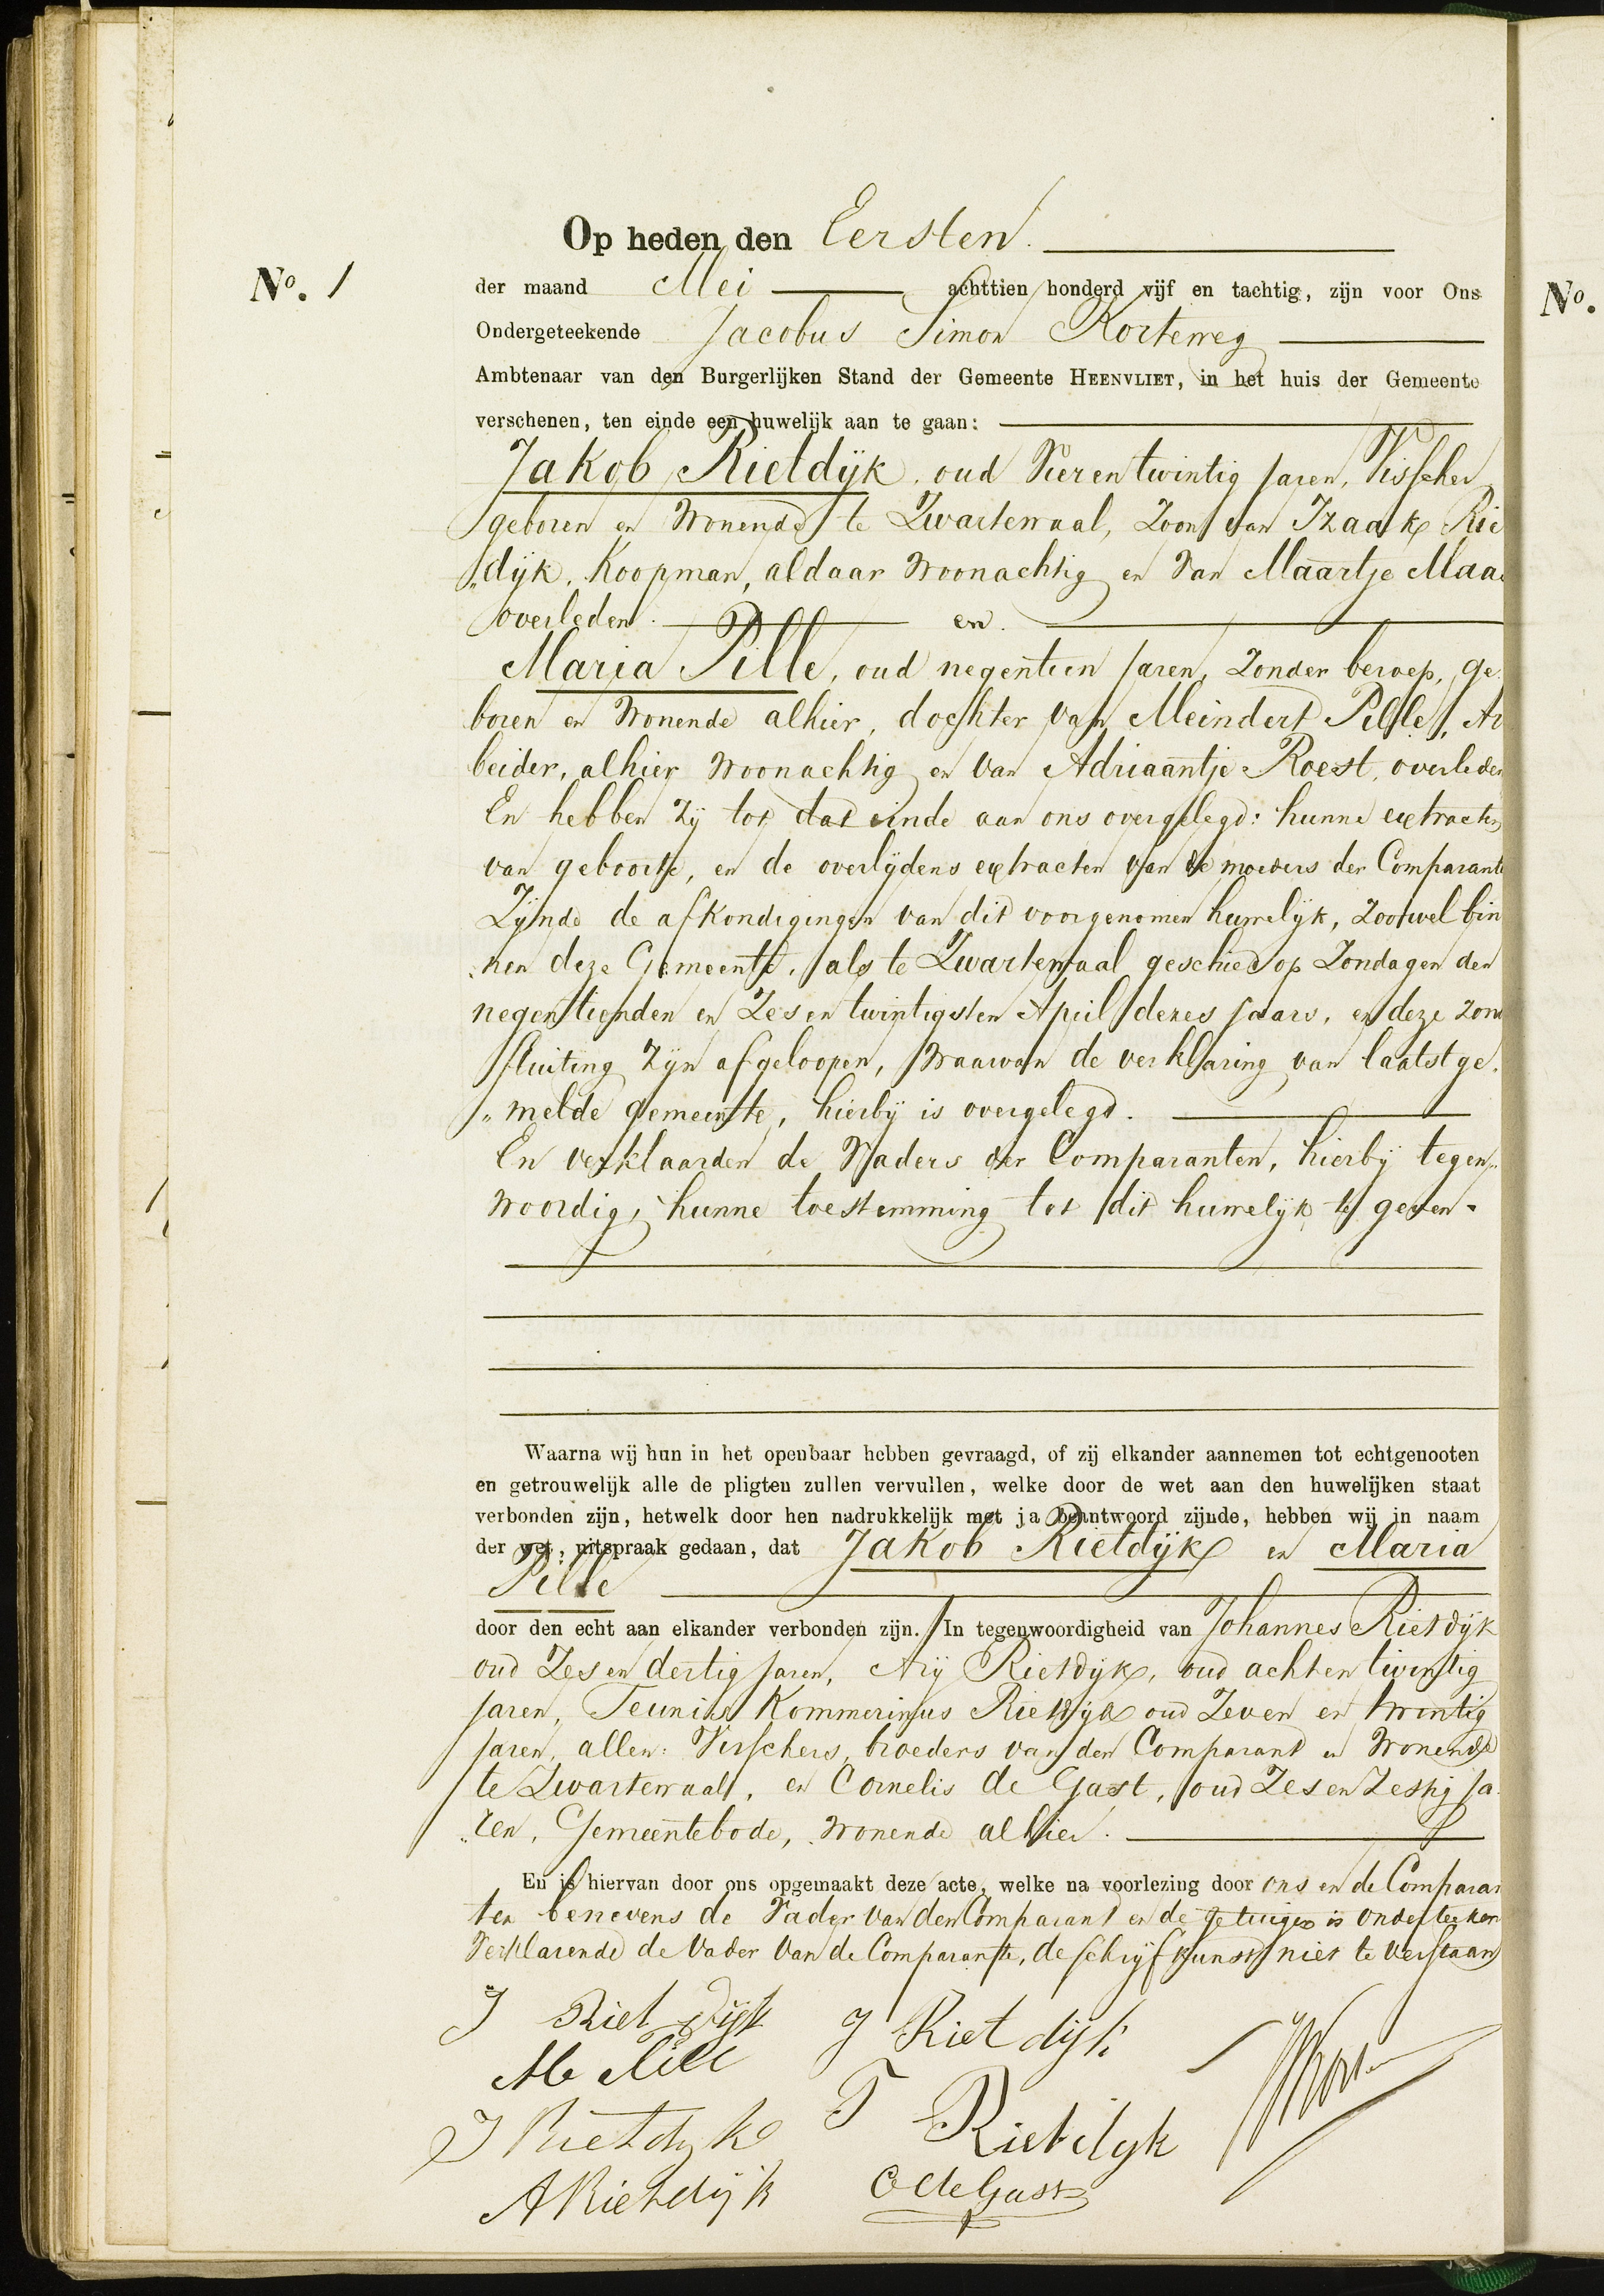 Op heden den Eersten.
No. 1
der maand Mei achttien honderd vijf en tachtig, zijn voor Ons
No.
Ondergeteekende Jacobus Simon Korteweg
Ambtenaar van den Burgerlijken Stand der Gemeente HEENVLIET, in het huis der Gemeente
verschenen, ten einde een huwelijk aan te gaan:
Jakob Rietdijk, oud Vier en twintig Jaren, Visscher
geboren en Wonende te Zwartewaal, Zoon van Izaak Rie
„dijk, Koopman, aldaar Woonachtig en Van Maartje Maa
overleden. en.
Maria Pille, oud negentien Jaren, Zonder beroep, ge
boren en Wonende alhier, dochter van Meindert Pille, Ar
beider, alhier Woonachtig en Van Adriaantje Roest, overleden
En hebben Zij tot dat einde aan ons overgelegd: hunne extracten
van geboorte, en de overlijdens extracten van de moeders der Comparante
Zijnde de afkondigingen van dit voorgenomen huwelijk, Zoowel bin
„nen deze Gemeente, als te Zwartewaal geschied op Zondagen den
negentienden en Zes en twintigsten April dezes Jaars, en deze zon
stuiting Zijn afgeloopen, Waarvan de verklaring van laatstge.
„melde gemeente, hierbij is overgelegd.
En verklaarden de Vaders der Comparanten, hierbij tegen„
woordig, hunne toestemming tot dit huwelijk te geven.
Waarna wij hun in het openbaar hebben gevraagd, of zij elkander aannemen tot echtgenooten
en getrouwelijk alle de pligten zullen vervullen, welke door de wet aan den huwelijken staat
verbonden zijn, hetwelk door hen nadrukkelijk met ja beantwoord zijnde, hebben wij in naam
der wet, uitspraak gedaan, dat Jakob Rietdijk en Maria
Pille
door den echt aan elkander verbonden zijn. In tegenwoordigheid van Johannes Rietdijk
oud Zes en dertig Jaren, Arij Rietdijk, oud acht en twintig
Jaren, Teunis Kommerinus Rietdijk oud Zeven en twintig
Jaren, allen: Visschers, broeders van den Comparant en Wonende
te Zwartewaal, en Cornelis de Gast, oud Zes en Zestig Ja
„ren, Gemeentebode, Wonende alhier.
En is hiervan door ons opgemaakt deze acte, welke na voorlezing door ons en de Comparan
ten benevens de Vader van den Comparant en de getuigen is onderteeken
Verklarende de Vader van de Comparante, de schrijfkunst niet te verstaan
J Rietdijk J Rietdijk
M Pille
J Rietdijk T Rietdijk
A Rietdijk C de Gast